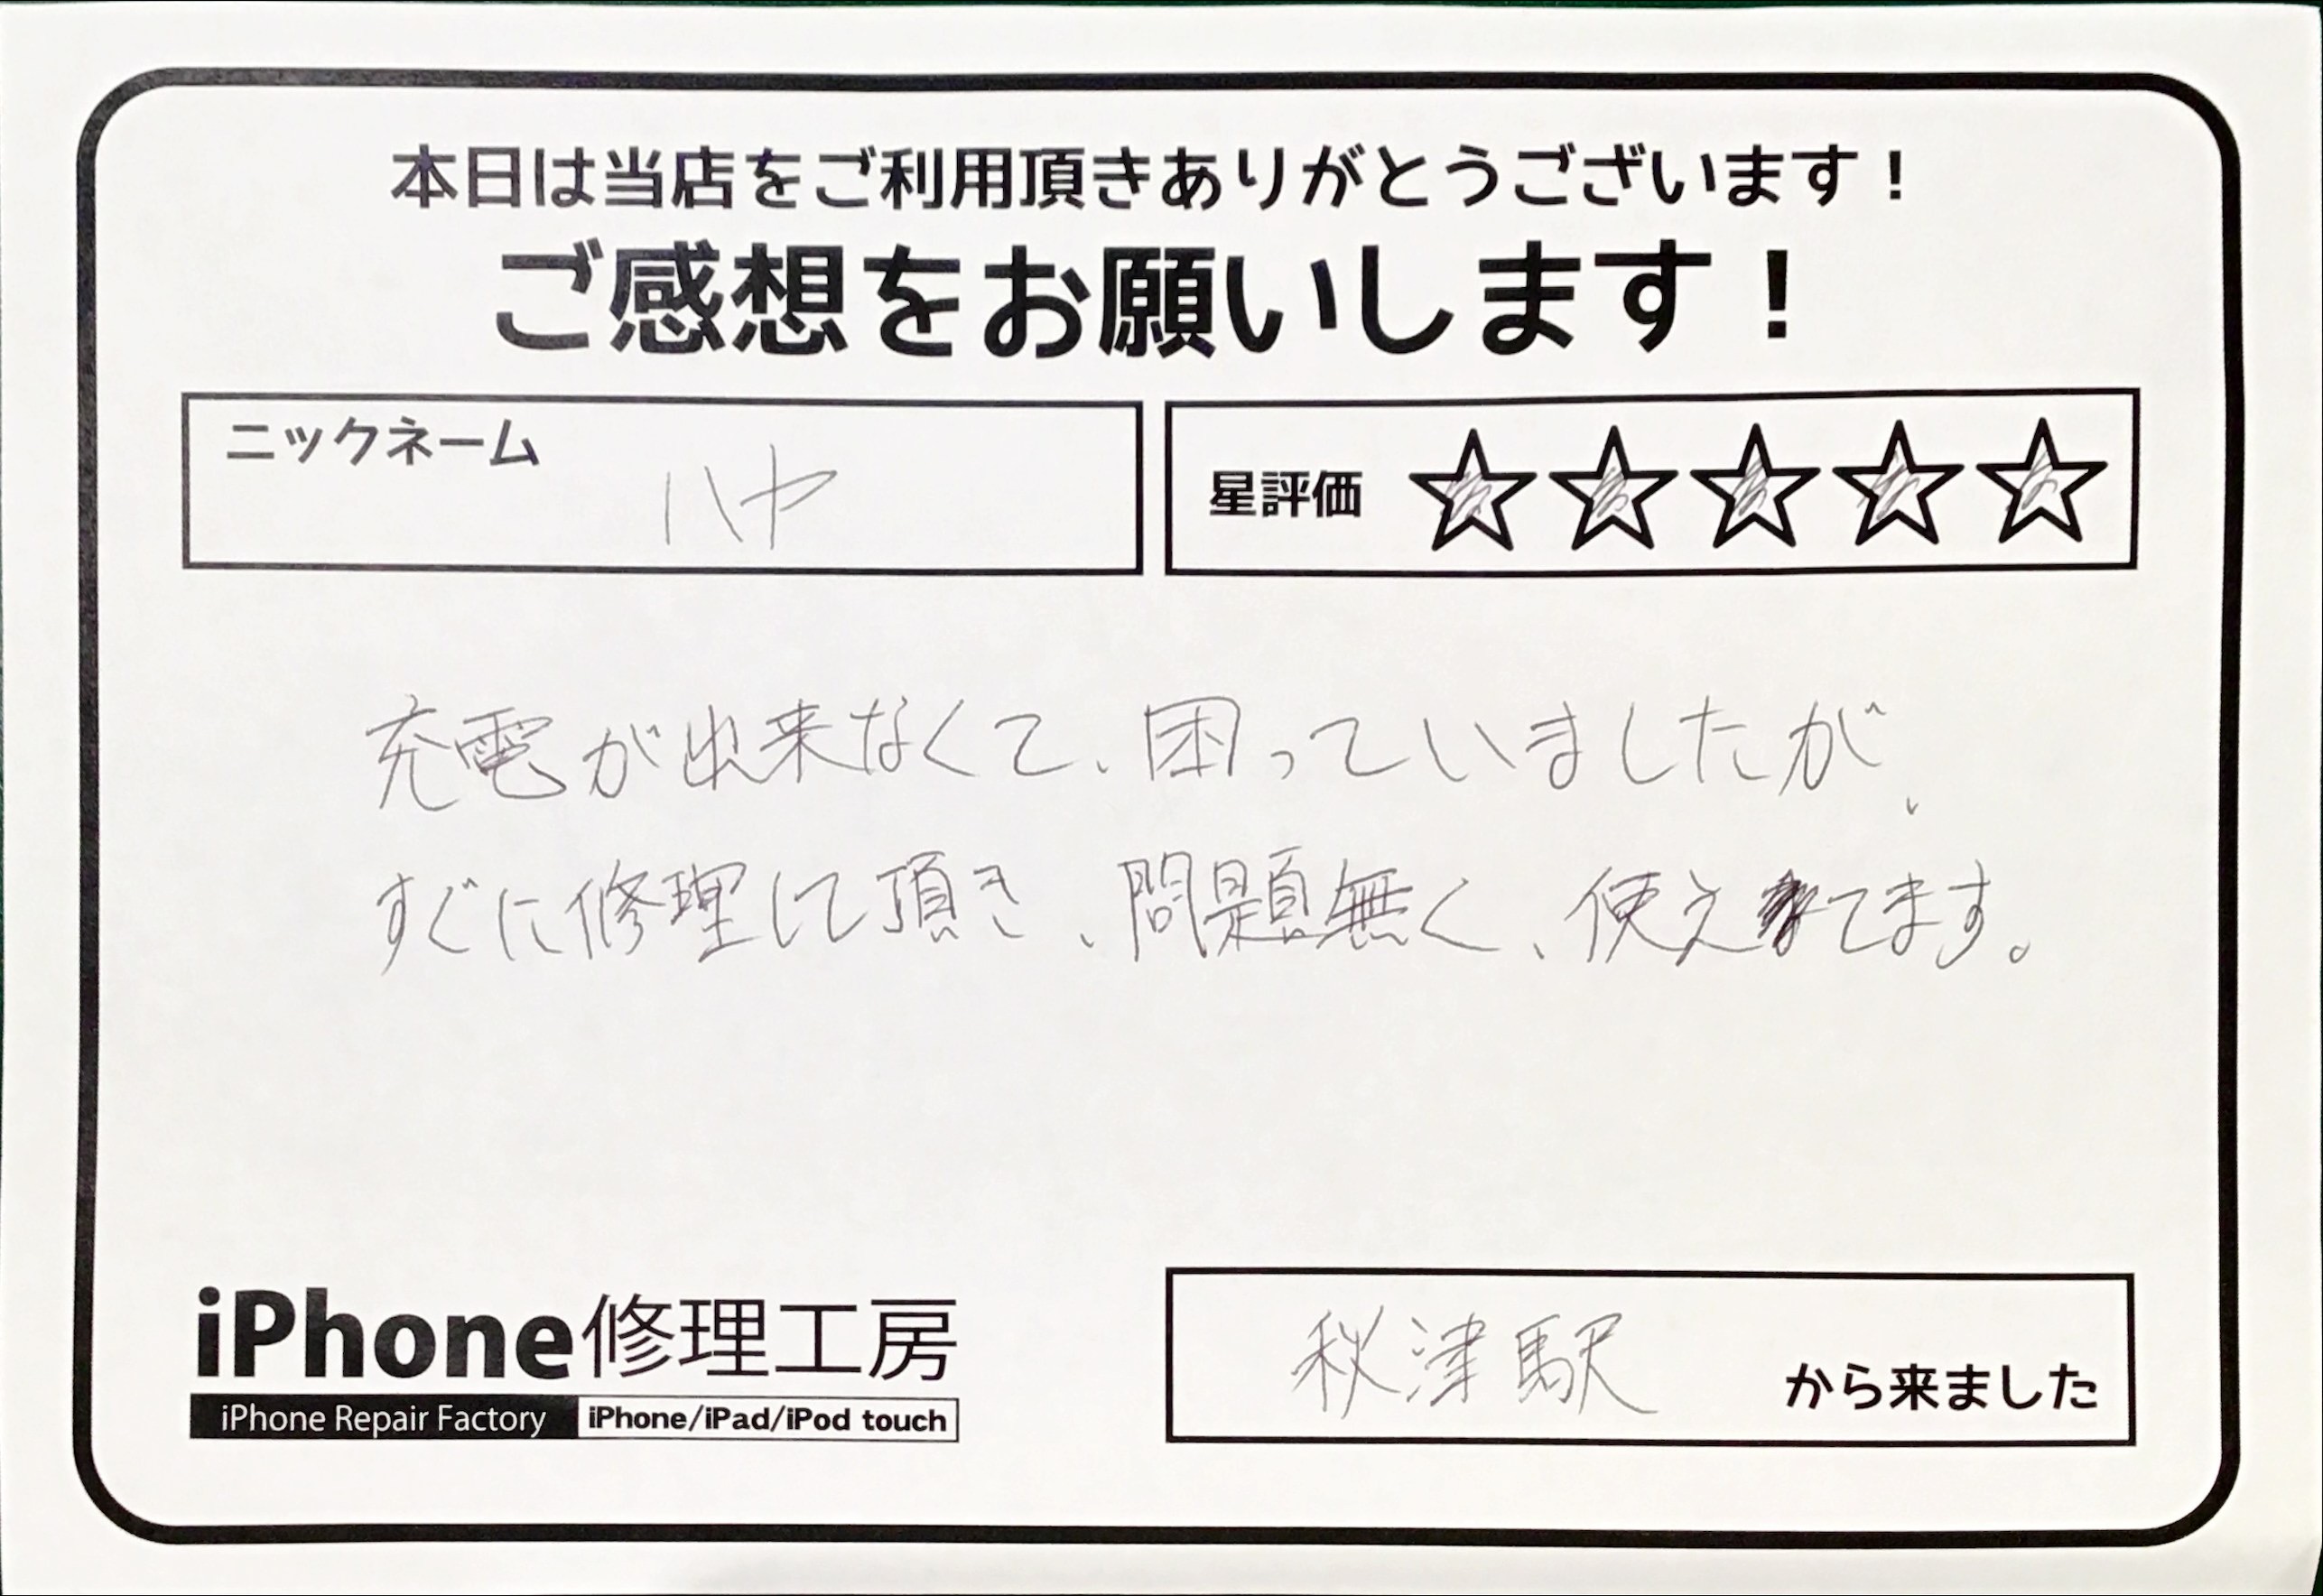 本日は当店をご利用頂きありがとうございます！
ご感想をお願いします！
ニックネーム ハヤ
星評価 ☆☆☆☆☆
充電が出来なくて、困っていましたが、
すぐに修理して頂き、問題無く、使えてます。
iPhone修理工房
iPhone Repair Factory iPhone/iPad/iPod touch
秋津駅 から来ました